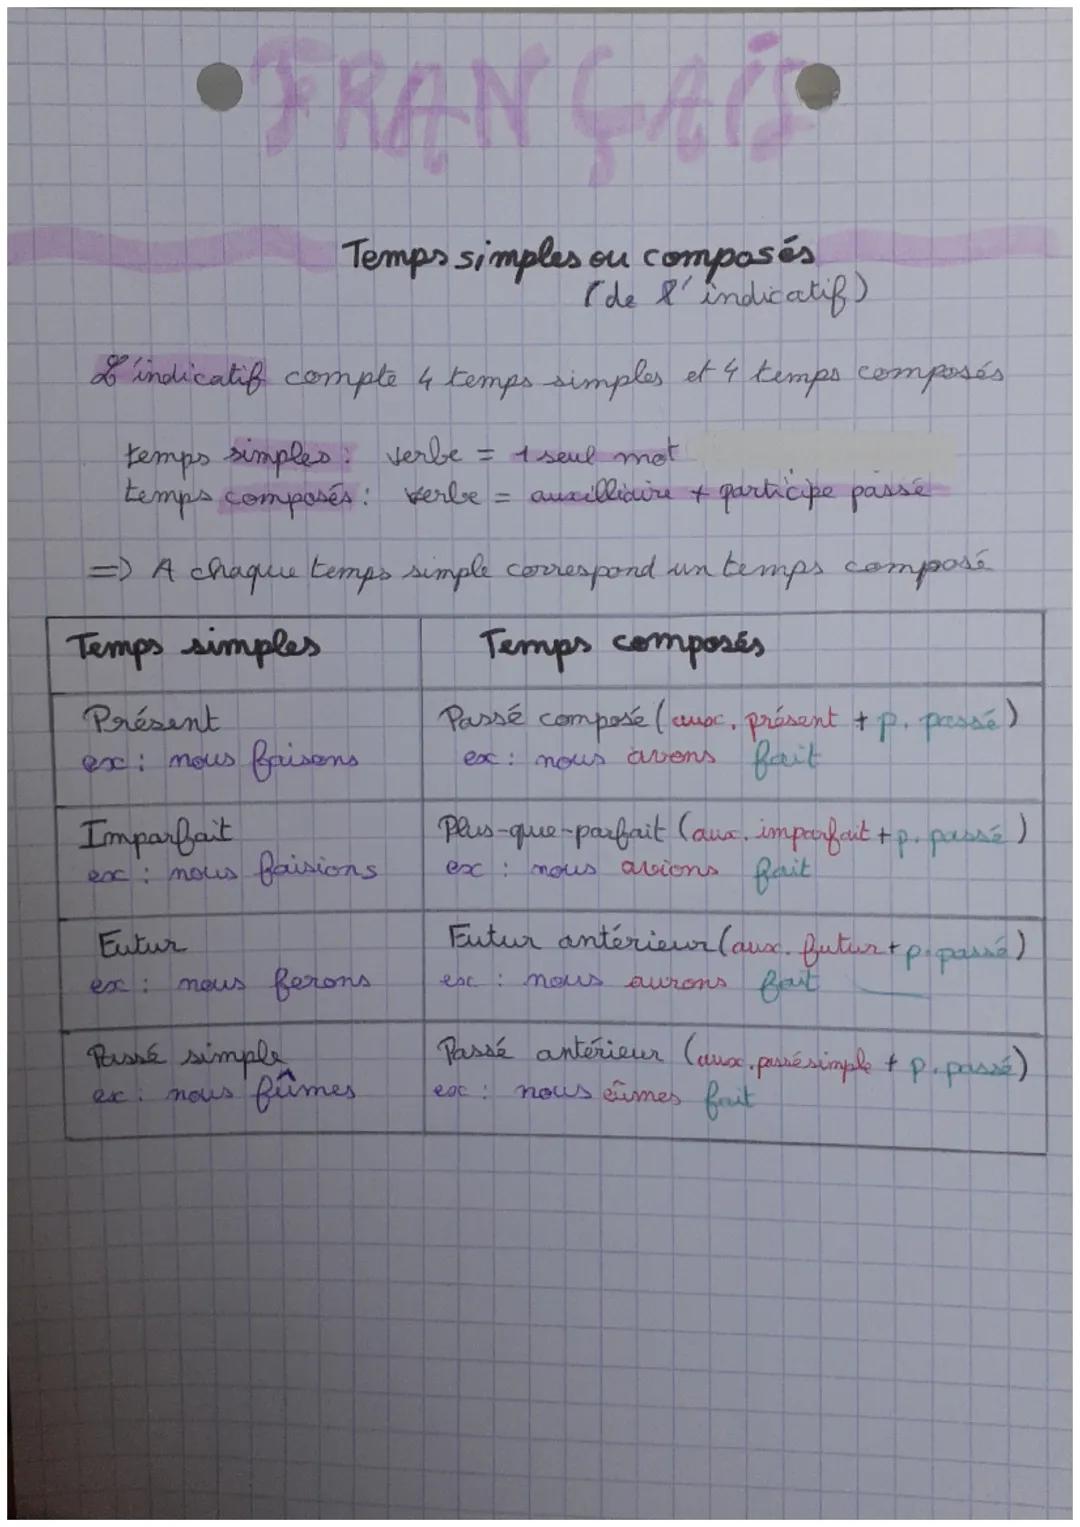 FRANÇAIS
Temps simples ou composés
(de l'indicatif)
L'indicatif compte 4 temps simples et 4 temps composés
temps simples : verbe = 1 seul mot
temps composés : verbe = auxilliaire + participe passé
=> A chaque temps simple correspond un temps composé
Temps simples
Temps composés
Présent
ex : nous faisons
Passé composé (aux. présent + p. passé)
ex : nous avons fait
Imparfait
ex : nous faisions
Plus-que-parfait (aux. imparfait + p. passé)
ex : nous avions fait
Futur
ex : nous ferons
Futur antérieur (aux. futur + p. passé)
ex : nous aurons fait
Passé simple
ex : nous fûmes
Passé antérieur (aux. passé simple + p. passé)
ex : nous eûmes fait